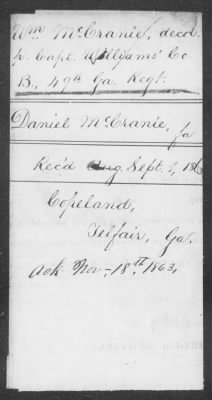 Wm McCranie, decd.
p. Capt. Williams' Co.
B., 49th Ga. Regt.
Daniel McCranie, fa
Rec'd Aug. Sept. 1, 1863
Copeland,
Telfair, Ga.
Ack Nov. 18th 1863,